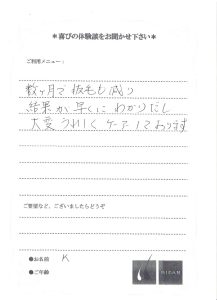 ＊喜びの体験談をお聞かせ下さい＊
ご利用メニュー：
数ヶ月で抜毛も減り
結果が早くにわかりだし
大変うれしくケアしております
ご要望など、ございましたらどうぞ
●お名前 K
●ご年齢
BIZAN